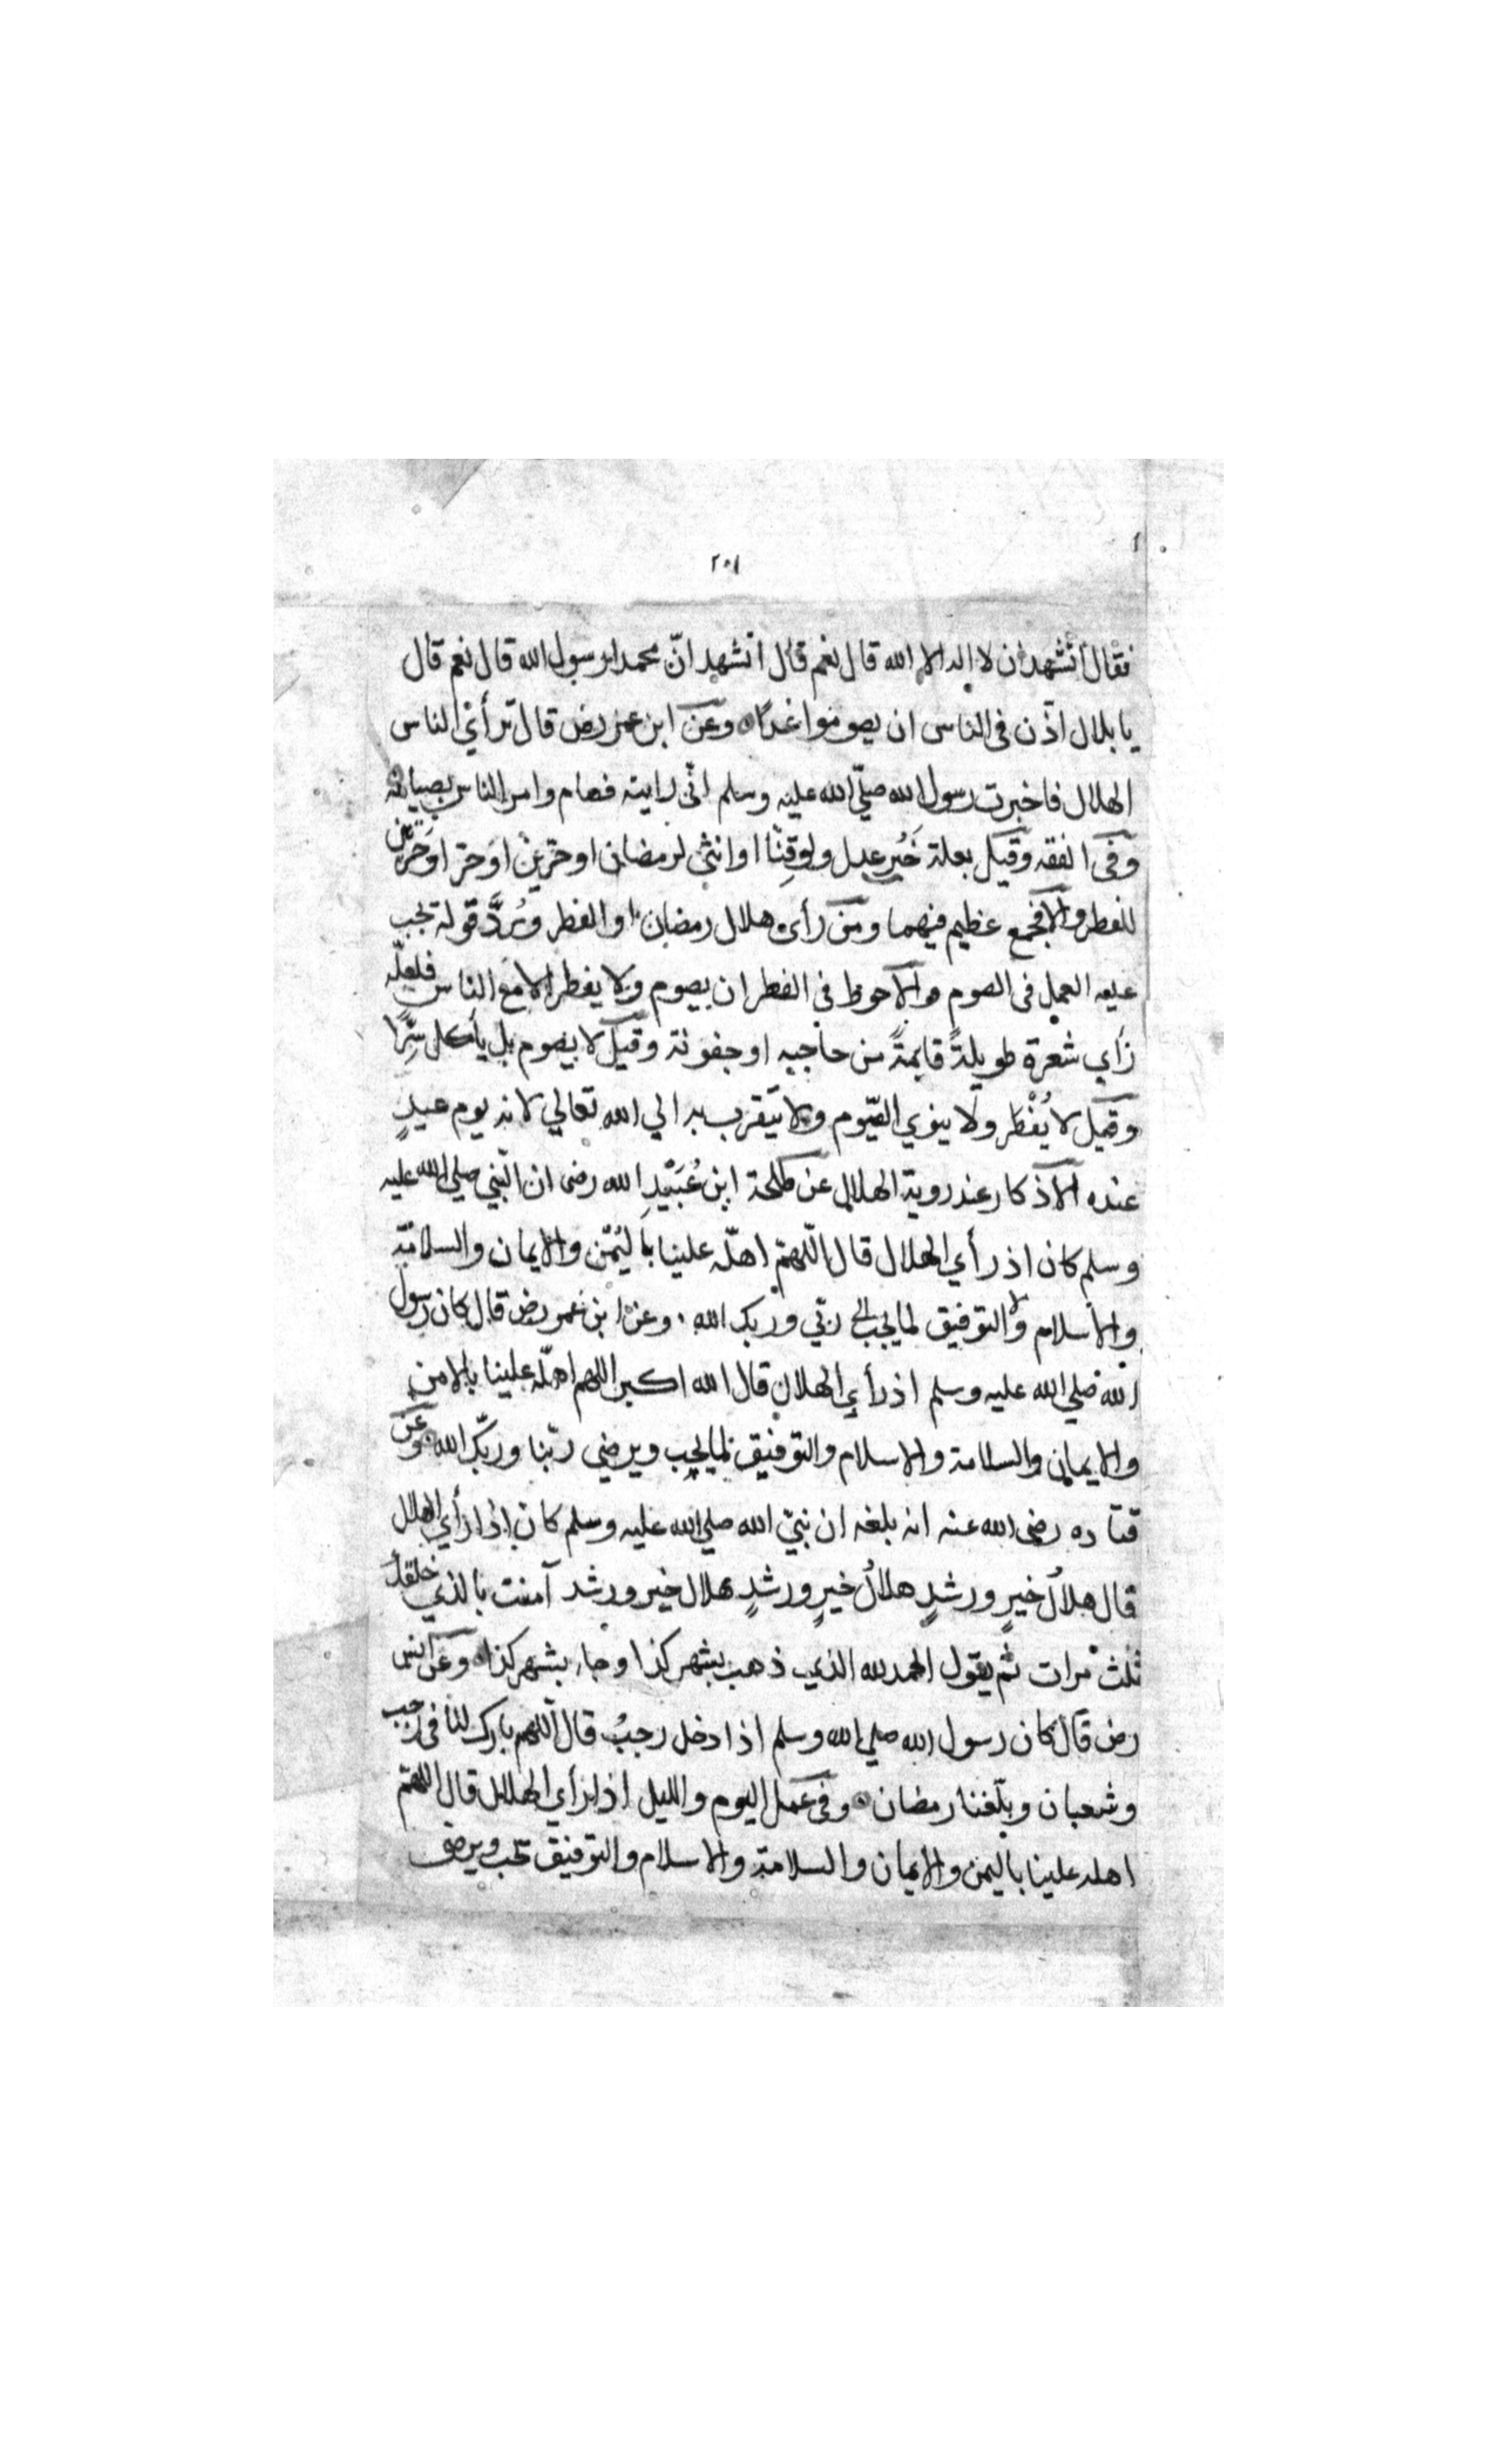 ٢٠١
فقال أتشهد ان لا اله الا الله قال نعم قال اتشهد انّ محمدا رسول الله قال نعم قال
يا بلال اذّن فى الناس ان يصوموا غدًا وعن ابن عمر رض قال ترأي الناس
الهلال فاخبرت رسول الله صلّي الله عليه وسلم انّى رايته فصام وامر الناس بصيامه
وفى الفقه وقيل بعلة خَبر عدل ولو قِنّا او انثى لرمضان او حرّين او حرّ او حرّتين
للفطر والا فجمع عظيم فيهما ومن رأى هلال رمضان او الفطر ورُدَّ قوله يجب
عليه العمل فى الصوم والاحوط في الفطر ان يصوم ولا يفطر الا مع الناس فلعلّه
رَأي شعرة طويلةً قايمةً من حاجبه او جفونه وقيل لا يصوم بل يأكل سِرًّا
وقيل لا يُفْطر ولا ينوي الصّوم ولا يتقرب به الي الله تعالي لانه يوم عيدٍ
عنده الاذكار عند روية الهلال عن طلحة ابن عُبَيْدِ الله رضى ان النّبي صلي الله عليه
وسلم كان اذ رأي الهلال قال اللّهمّ اهلّه علينا باليُمْن والايمان والسلامة
والاسلام والتوفيق لما يحب ربّي وربك الله وعن ابن عمر رض قال كان رسول
الله صلي الله عليه وسلم اذ رأي الهلال قال الله اكبر اللهم اهلّه علينا بالامن
والايمان والسلامة والاسلام والتوفيق لما يحب ويرضي ربّنا وربّك الله وعن
قتاده رضى الله عنه انه بلغه ان نبيّ الله صلي الله عليه وسلم كان اذا رأي الهلال
قال هلالُ خيرٍ ورشدٍ هلالُ خيرٍ ورشدٍ هلال خير ورشد آمنت بالذي خلقك
ثلث مرات ثم يقول الحمد لله الذي ذهب بشهر كذا وجاء بشهر كذا وعن انس
رض قال كان رسول الله صلي الله وسلم اذا دخل رجبُ قال اللهم بارك لنا في رجب
وشعبان وبلّغنا رمضان وفى عمل اليوم والليل اذا رأي الهلال قال اللهمّ
اهله علينا باليمن والايمان والسلامة والاسلام والتوفيق تحب ويرضى